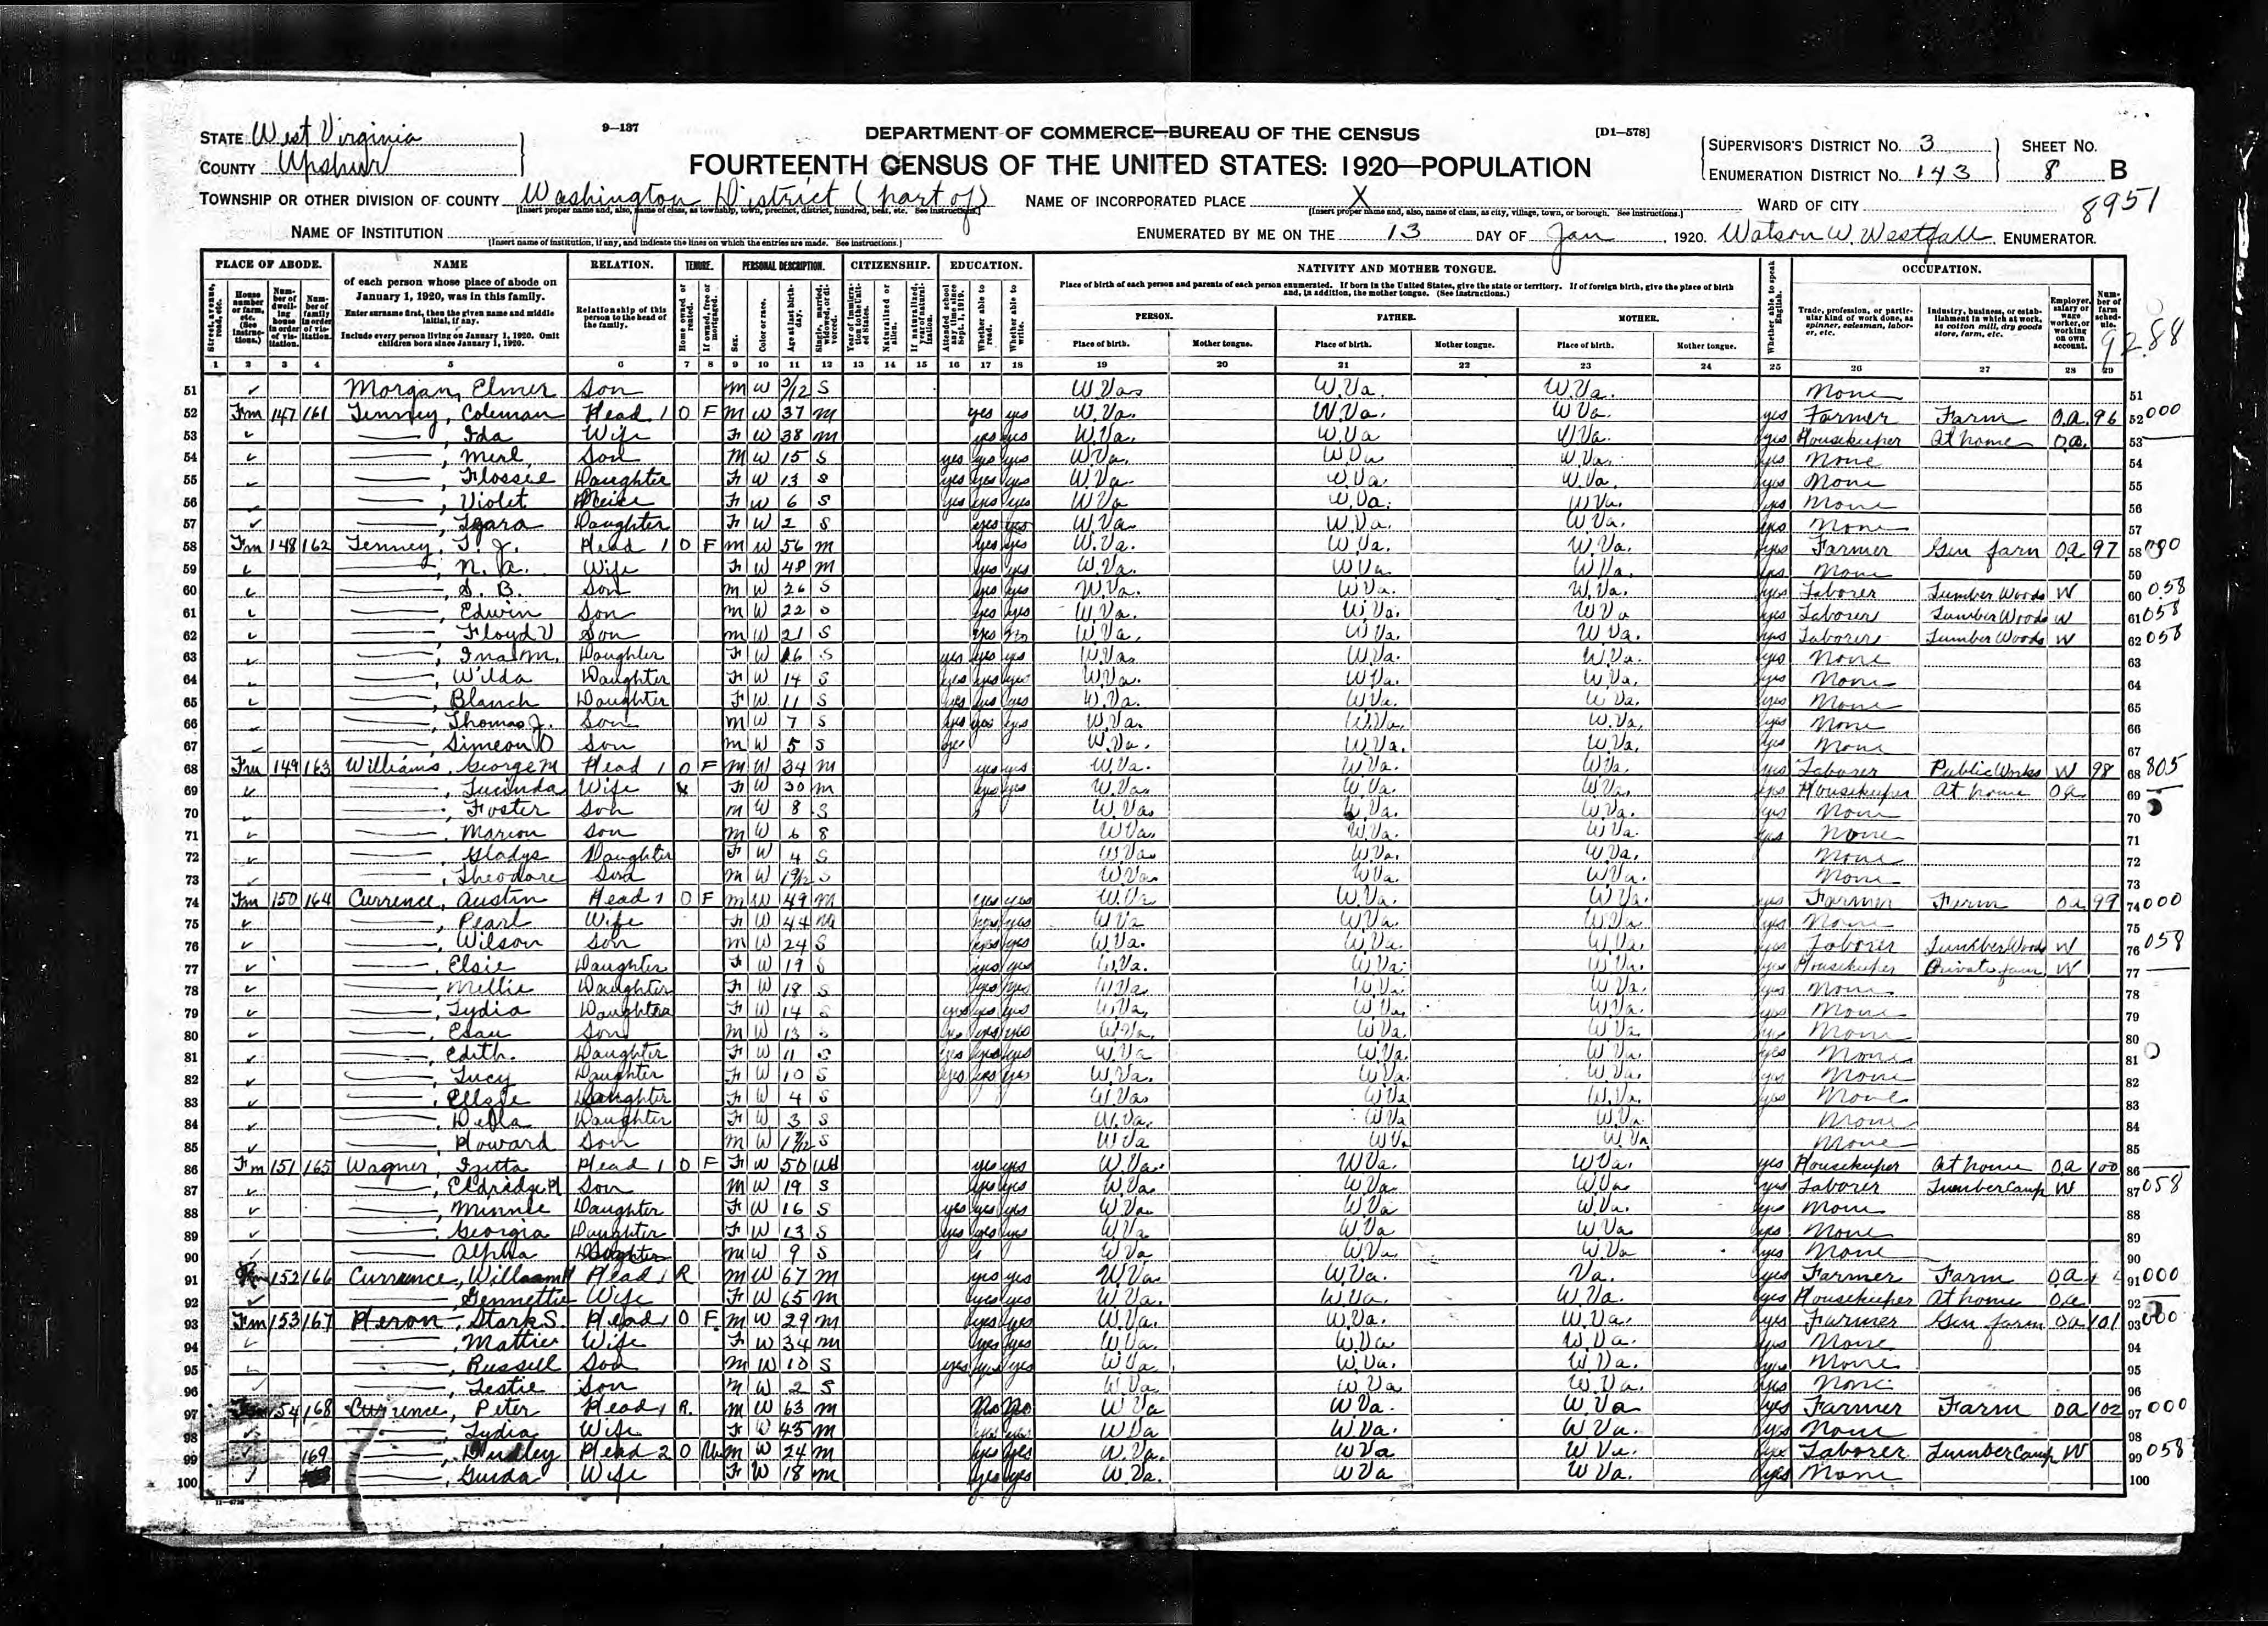 9—137
DEPARTMENT OF COMMERCE—BUREAU OF THE CENSUS
[D1—578]
STATE West Virginia
COUNTY Upshur
FOURTEENTH CENSUS OF THE UNITED STATES: 1920—POPULATION
SUPERVISOR'S DISTRICT No. 3
ENUMERATION DISTRICT No. 143
SHEET No. 8 B
TOWNSHIP OR OTHER DIVISION OF COUNTY Washington District (part of)
[Insert proper name and, also, name of class, as township, town, precinct, district, hundred, beat, etc. See instructions.]
NAME OF INCORPORATED PLACE X
[Insert proper name and, also, name of class, as city, village, town, or borough. See instructions.]
WARD OF CITY
8951
NAME OF INSTITUTION
[Insert name of institution, if any, and indicate the lines on which the entries are made. See instructions.]
ENUMERATED BY ME ON THE 13 DAY OF Jan, 1920. Watson W. Westfall, ENUMERATOR.
PLACE OF ABODE. NAME RELATION. TENURE. PERSONAL DESCRIPTION. CITIZENSHIP. EDUCATION. NATIVITY AND MOTHER TONGUE. OCCUPATION.
9288
1 2 3 4 5 6 7 8 9 10 11 12 13 14 15 16 17 18 19 20 21 22 23 24 25 26 27 28 29
51 Morgan, Elmer Son M W S W.Va. W.Va. W.Va. None 51
52 Fm 147 161 Tenney, Coleman Head 1 O F M W 37 M yes yes W.Va. W.Va. W.Va. yes Farmer Farm O.a. 96 52 000
53 ——, Ida Wife F W 38 M yes yes W.Va. W.Va W.Va. yes Housekeeper At home O.a. 53
54 ——, Merl Son M W 15 S yes yes yes W.Va. W.Va W.Va. yes None 54
55 ——, Flossie Daughter F W 13 S yes yes yes W.Va. W.Va. W.Va. yes None 55
56 ——, Violet F W 6 S yes yes yes W.Va W.Va. W.Va. yes None 56
57 ——, Daughter F W 2 S yes yes W.Va. W.Va. W.Va. yes None 57
58 Fm 148 162 Tenney, T. J. Head 1 O F M W 56 M yes yes W.Va. W.Va. W.Va. yes Farmer Gen farm O.a 97 58
59 ——, N. A. Wife F W 48 M yes yes W.Va. W.Va W.Va. yes None 59
60 ——, S. B. Son M W 26 S yes yes W.Va. W.Va. W.Va. yes Laborer Lumber Woods W 60 058
61 ——, Edwin Son M W 22 S yes yes W.Va. W.Va. W.Va yes Laborer Lumber Woods W 61 058
62 ——, Floyd V Son M W 21 S yes W.Va. W.Va. W.Va. yes Laborer Lumber Woods W 62 058
63 ——, Ina M. Daughter F W 16 S yes yes yes W.Va. W.Va. W.Va. yes None 63
64 ——, Wilda Daughter F W 14 S yes yes yes W.Va. W.Va. W.Va. yes None 64
65 ——, Blanch Daughter F W 11 S yes yes yes W.Va. W.Va. W.Va. yes None 65
66 ——, Thomas J. Son M W 7 S yes yes yes W.Va. W.Va. W.Va. yes None 66
67 ——, Simeon O Son M W 5 S yes W.Va. W.Va. W.Va. yes None 67
68 Fm 149 163 Williams, George M Head 1 O F M W 34 M yes yes W.Va. W.Va. W.Va. yes Laborer Public Works W 98 68 805
69 ——, Lucinda Wife F W 30 M yes yes W.Va. W.Va. W.Va. yes Housekeeper At home O.a 69
70 ——, Foster Son M W 8 S W.Va. W.Va. W.Va. yes None 70
71 ——, Marion Son M W 6 S W.Va. W.Va. W.Va. yes None 71
72 ——, Gladys Daughter F W 4 S W.Va. W.Va. W.Va. None 72
73 ——, Theodore Son M W S W.Va. W.Va. W.Va. None 73
74 Fm 150 164 Currence, Austin Head 1 O F M W 49 M yes yes W.Va W.Va. W.Va. yes Farmer Farm O.a 99 74 000
75 ——, Pearl Wife F W 44 M yes yes W.Va W.Va. W.Va yes None 75
76 ——, Wilson Son M W 24 S yes yes W.Va. W.Va. W.Va. yes Laborer Lumber Woods W 76 058
77 ——, Elsie Daughter F W 19 S yes yes W.Va. W.Va. W.Va. yes Housekeeper Private fam W 77
78 ——, Mellie Daughter F W 18 S yes yes W.Va. W.Va. W.Va. yes None 78
79 ——, Lydia Daughter F W 14 S yes yes yes W.Va. W.Va. W.Va. yes None 79
80 ——, Esau Son M W 13 S yes yes yes W.Va. W.Va. W.Va. yes None 80
81 ——, Edith Daughter F W 11 S yes yes yes W.Va W.Va. W.Va. yes None 81
82 ——, Lucy Daughter F W 10 S yes yes yes W.Va. W.Va. W.Va. yes None 82
83 ——, Daughter F W 4 S W.Va. W.Va W.Va. yes None 83
84 ——, Della Daughter F W 3 S W.Va. W.Va W.Va. None 84
85 ——, Howard Son M W S W.Va W.Va W.Va None 85
86 Fm 151 165 Wagner, Head 1 O F F W 50 Wd yes yes W.Va. W.Va. W.Va. yes Housekeeper At home O.a 100 86
87 ——, Eldridge H Son M W 19 S yes yes W.Va. W.Va W.Va yes Laborer Lumber Camp W 87 058
88 ——, Minnie Daughter F W 16 S yes yes yes W.Va. W.Va W.Va. yes None 88
89 ——, Georgia Daughter F W 13 S yes yes yes W.Va W.Va W.Va yes None 89
90 —— Alpha M W 9 S W.Va W.Va. W.Va yes None 90
91 152 166 Currence, William H Head 1 R M W 67 M yes yes W.Va. W.Va. Va. yes Farmer Farm O.a 91 000
92 ——, Gennettie Wife F W 65 M yes yes W.Va. W.Va. W.Va. yes Housekeeper At home O.a 92
93 Fm 153 167 Heron, Stark S. Head 1 O F M W 29 M yes yes W.Va. W.Va. W.Va. yes Farmer Gen farm O.a 101 93 000
94 ——, Mattie Wife F W 34 M yes yes W.Va. W.Va. W.Va. yes None 94
95 ——, Russell Son M W 10 S yes yes yes W.Va W.Va. W.Va. yes None 95
96 ——, Lestie Son M W 2 S W.Va W.Va W.Va. yes None 96
97 Fm 154 168 Currence, Peter Head 1 R. M W 63 M No No W.Va W.Va. W.Va yes Farmer Farm O.a 102 97 000
98 ——, Lydia Wife F W 45 M yes yes W.Va W.Va. W.Va. yes None 98
99 169 ——, Dudley Head 2 O M W 24 M yes yes W.Va. W.Va W.Va. yes Laborer Lumber Camp W 99 058
100 ——, Wife F W 18 M yes yes W.Va. W.Va W.Va. yes None 100